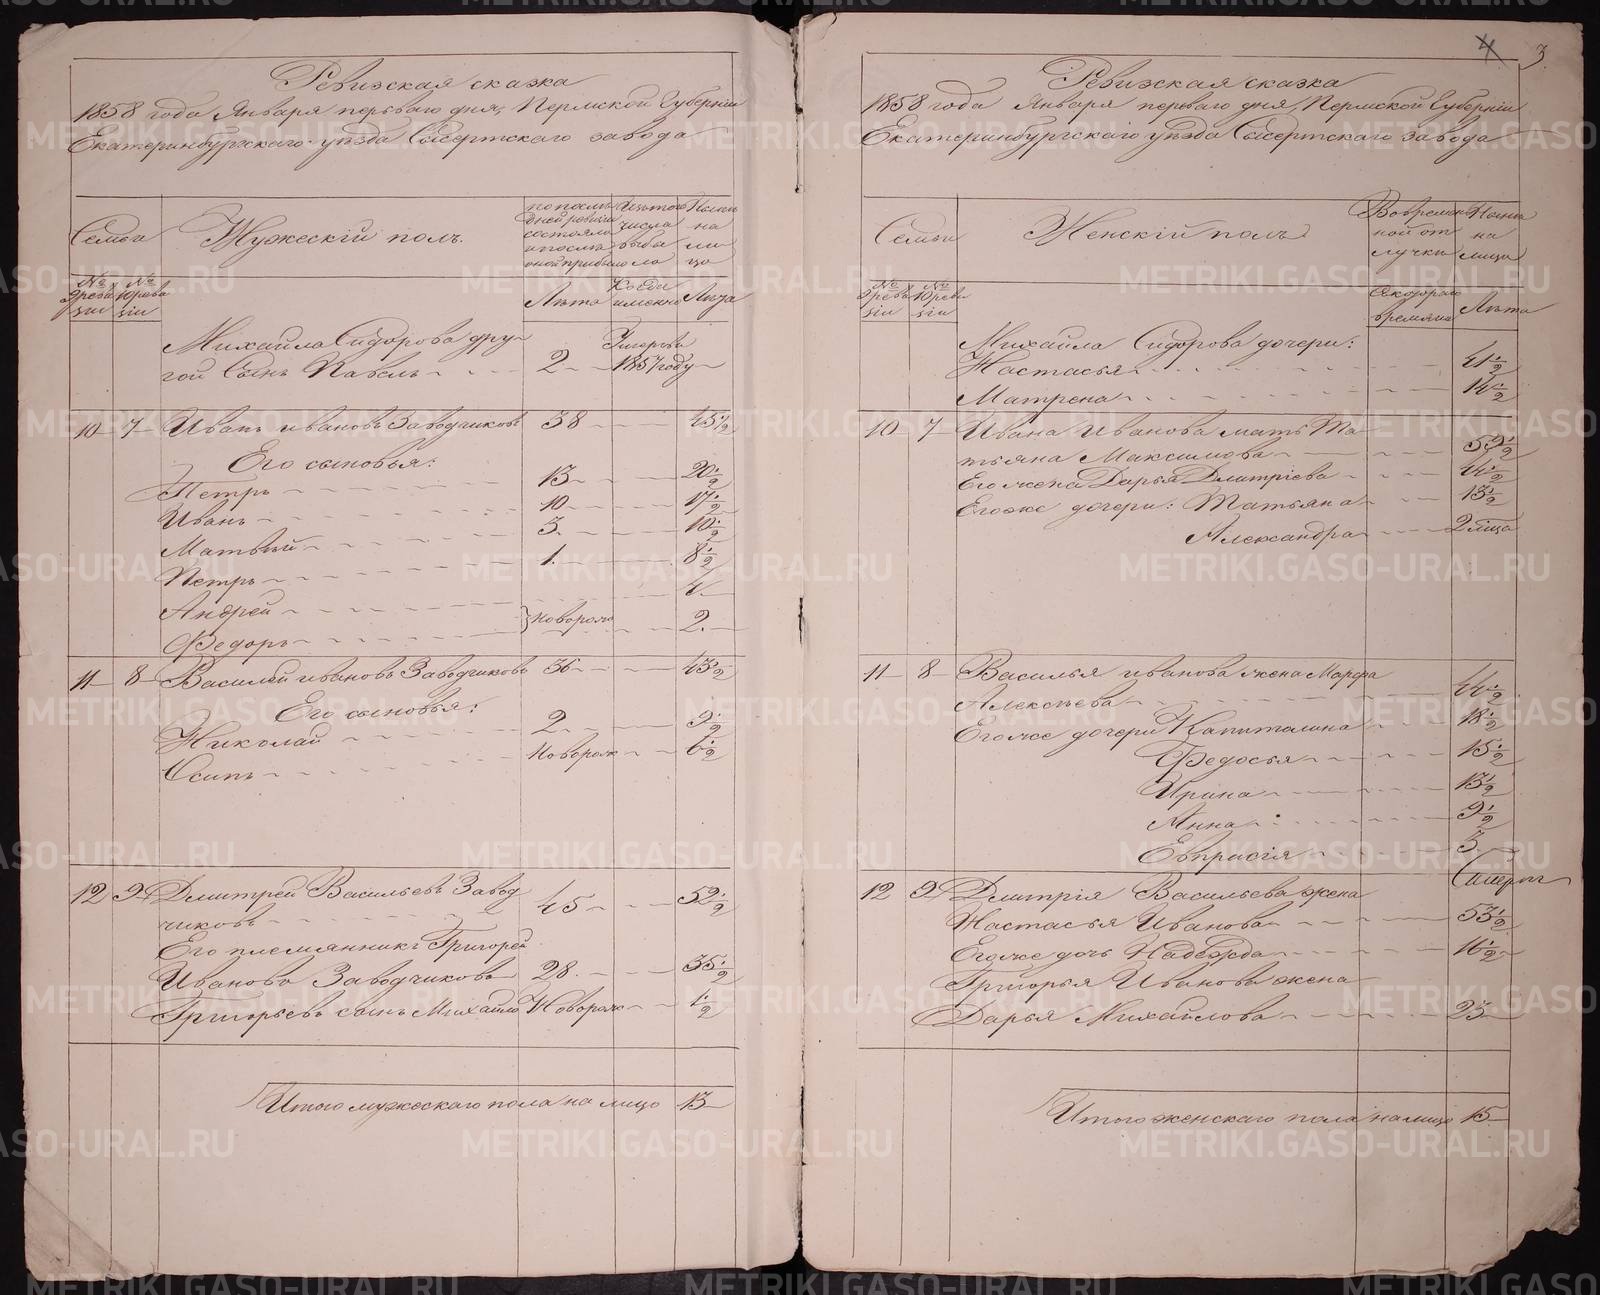 Ревизская сказка
1858 года Января перваго дня, Пермской Губерніи
Екатеринбургскаго уѣзда Сысертскаго завода
Семьи
Мужескій полъ.
по послѣ
дней ревизіи
состояло
и послѣ
оной прибыло
Изъ того
числа
выбы
ло
Нынѣ
на
ли
цо
№ 9 реви
зіи
№ 10 реви
зіи
Лѣта
Когда
именно
Лѣта
Михайла Сидорова дру-
гой Сынъ Павелъ 2 Умеръ въ 1857 году
10 7 Иванъ Ивановъ Заводчиковъ 38 45 1/2
Его сыновья:
Петръ 13 20 1/2
Иванъ 10 17 1/2
Матвѣй 3 10 1/2
Петръ 1 8 1/2
Андрей 4
Федоръ Новорож 2
11 8 Василей Ивановъ Заводчиковъ 36 43 1/2
Его сыновья:
Николай 2 9 1/2
Осипъ Новорож 6 1/2
12 9 Дмитрей Васильевъ Завод
чиковъ 45 52 1/2
Его племянникъ Григорей
Иванова Заводчикова 28 35 1/2
Григорьевъ сынъ Михайло Новорож 1/2
Итого мужескаго пола на лицо 13
4 3
Ревизская сказка
1858 года Января перваго дня, Пермской Губерніи
Екатеринбургскаго уѣзда Сысертскаго завода
Семьи
Женскій полъ
Во времен
ной от
лучкѣ
Нынѣ
на
лицо
№ 9 реви
зіи
№ 10 реви
зіи
Съ котораго
времяни
Лѣта
Михайла Сидорова дочери:
Настасья 41 1/2
Матрена 14 1/2
10 7 Ивана Иванова мать Та-
тьяна Максимова 59 1/2
Его жена Дарья Дмитріева 44 1/2
Его же дочери: Татьяна 13 1/2
Александра 2 лица
11 8 Василья Иванова жена Марфа
Алексѣева 44 1/2
Его же дочери Капиталина 18 1/2
Федосья 15 1/2
Ирина 13 1/2
Анна 9 1/2
Евпрасія 3
12 9 Дмитрія Васильева жена
Настасья Иванова 53 1/2
Его же дочь Надежда 16 1/2
Григорья Иванова жена
Дарья Михайлова 23
Итого женскаго пола налицо 15
METRIKI.GASO-URAL.RU